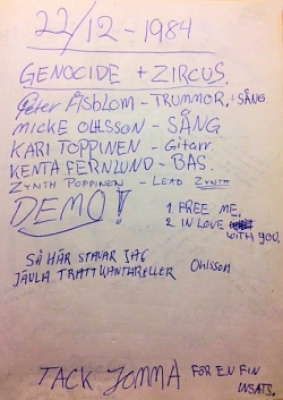 22/12-1984
GENOCIDE + ZIRCUS.
Peter Åsblom - TRUMMOR, + SÅNG
MICKE OHLSSON - SÅNG
KARI TOPPINEN - Gitarr.
KENTA FERNLUND - BAS.
ZYNTH POPPINEN - LEAD ZYNTH
DEMO!
1. FREE ME.
2 IN LOVE WITH YOU.
SÅ HÄR STAVAR JAG
JÄVLA TRATTKANTARELLER Ohlsson
TACK JOMMA FÖR EN FIN
INSATS.